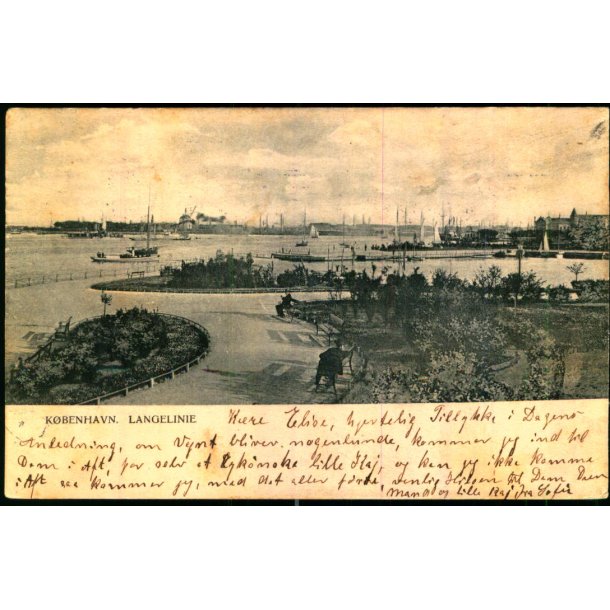 KØBENHAVN. LANGELINIE
Kære Elise, hjertelig Tillykke i Dagens
Anledning, om Vejret bliver nogenlunde, kommer jeg ind til
Dem i Aft, for selv at lykønske lille Kaj, og kan jeg ikke komme
i Aft saa kommer jeg, med det aller første, venlig Hilsen til Dem Deres
Mand og lille Kaj fra Sofie